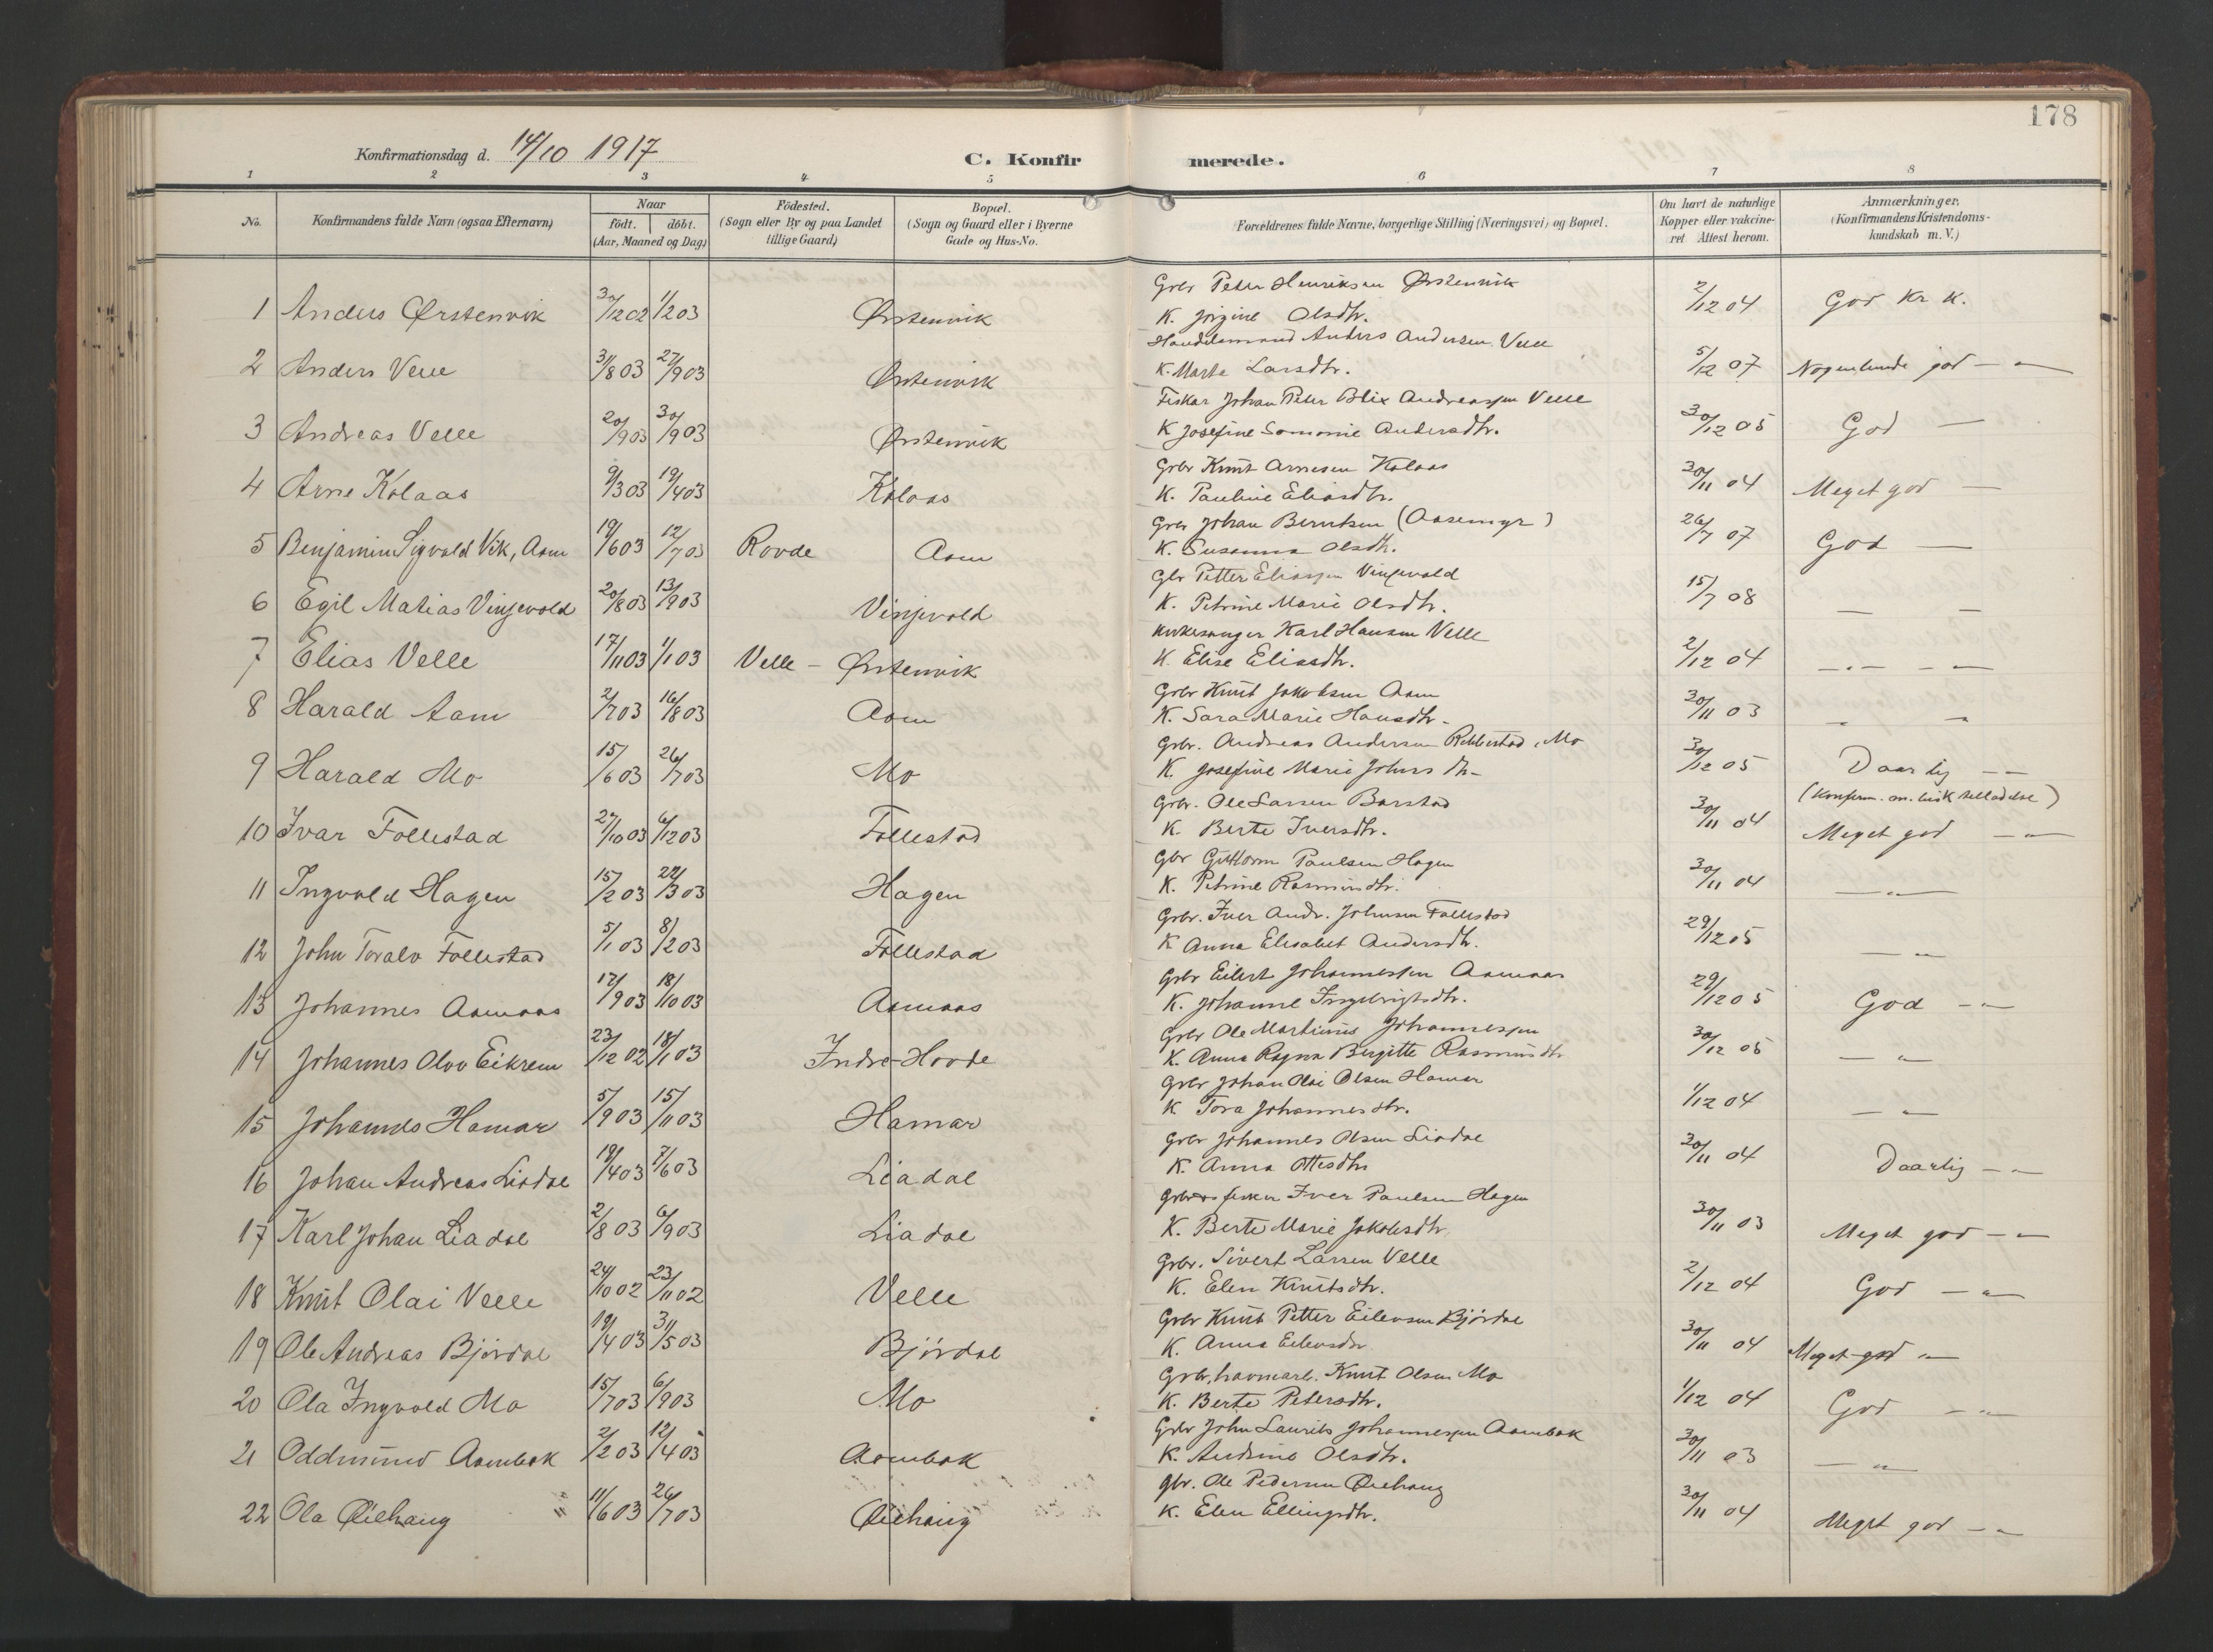 178
Konfirmationsdag d. 14/10 1917
C. Konfir merede.
1 2 3 4 5 6 7 8
No.
Konfirmandens fulde Navn (ogsaa Efternavn)
Naar
født. døbt.
(Aar, Maaned og Dag)
Fødested.
(Sogn eller By og paa Landet
tillige Gaard)
Bopæl.
(Sogn og Gaard eller i Byerne
Gade og Hus-No.
Forældrenes fulde Navne, borgerlige Stilling (Næringsvei) og Bopæl.
Om havt de naturlige
Kopper eller vakcine-
ret Attest herom.
Anmærkninger.
(Konfirmandens Kristendoms-
kundskab m. V.)
Grbr Peter Henriksen Ørstenvik
1 Anders Ørstenvik 30/12 02 1/2 03 Ørstenvik K. Jørgine Olsdtr. 2/12 04 God Kr. K.
Handelsmand Anders Andersen Velle
2 Anders Velle 31/8 03 27/9 03 Ørstenvik K. Marte Larsdtr. 5/12 07 Nogenlunde god — „ —
Fisker Johan Peter Blix Andreassen Velle
3 Andreas Velle 20/9 03 30/9 03 Ørstenvik K Josefine Andersdtr. 30/12 05 God —
Grbr Knut Arnesen Kolaas
4 Arne Kolaas 9/3 03 19/4 03 Kolaas K. Pauline Eliasdtr. 30/11 04 Meget god —
Grbr Johan Berntsen (Aasemyr)
5 Benjamin Sigvald Vik, Aam 19/6 03 12/7 03 Rovde Aam K. Susanna Olsdtr. 26/7 07 God —
Gbr Petter Eliassen Vinjevold
6 Egil Matias Vinjevold 20/8 03 13/9 03 Vinjevold K. Petrine Marie Olsdtr. 15/7 08 — —
Kirkesanger Karl Hansen Velle
7 Elias Velle 17/11 03 1/1 03 Velle - Ørstenvik K. Elise Eliasdtr. 2/12 04 — „ — — —
Grbr Knut Jakobsen Aam
8 Harald Aam 2/7 03 16/8 03 Aam K. Sara Marie Hansdtr. 30/11 03 „ „
Grbr. Andreas Andersen Rebbestad, Mo
9 Harald Mo 15/6 03 26/7 03 Mo K. Josefine Marie Johns dtr 30/12 05 Daarlig — —
(Konfirm. m. bisk tilladelse)
Grbr. Ole Larsen Barstad
10 Ivar Follestad 27/10 03 6/12 03 Follestad K. Berte Iversdtr. 30/11 04 Meget god — „ —
Gbr Guttorm Paulsen Hagen
11 Ingvald Hagen 15/2 03 22/3 03 Hagen K. Petrine Rasmusdtr. 30/11 04 — „ —
Grbr. Iver Andr. Johnsen Follestad
12 John Toralv Follestad 5/1 03 8/2 03 Follestad K Anna Elisabet Andersdtr. 29/12 05 — „ —
Grbr Eilert Johannessen Aamaas
13 Johannes Aamaas 17/9 03 18/10 03 Aamaas K. Johanne Ingebrigtsdtr. 29/12 05 God — „
Grbr Ole Martinus Johannessen
14 Johannes Olav Eikrem 23/12 02 18/1 03 Indre-Hovde K. Anna Ragna Birgitte Rasmusdtr 30/12 05 — „ —
Grbr Johan Olai Olsen Hamar
15 Johannes Hamar 5/9 03 15/11 03 Hamar K Tora Johannesdtr. 1/12 04 — „ —
Grbr Johannes Olsen Liadal
16 Johan Andreas Liadal 19/4 03 7/6 03 Liadal K. Anna Ottesdtr 30/11 04 Daarlig — „
Grbr og fisker Iver Paulsen Hagen
17 Karl Johan Liadal 2/8 03 6/9 03 Liadal K. Berte Marie Jakobsdtr. 30/11 03 Meget god — „
Grbr. Sivert Larsen Velle
18 Knut Olai Velle 24/10 02 23/11 02 Velle K. Elen Knutsdtr. 2/12 04 God — „ —
Grbr Knut Petter Eilevsen Bjørdal
19 Ole Andreas Bjørdal 19/4 03 31/5 03 Bjørdal K. Anna Eilevsdtr 30/11 04 Meget god „ —
Grbr, havnearb. Knut Olsen Mo
20 Ola Ingvald Mo 15/7 03 6/9 03 Mo K. Berte Petersdtr. 1/12 04 God — „ —
Grbr John Laurits Johannessen Aambak
21 Oddmund Aambak 2/2 03 12/4 03 Aambak K. Andrine Olsdtr. 30/11 03 — „ —
gbr. Ole Pedersen Øiehaug
22 Ola Øiehaug 11/6 03 26/7 03 Øiehaug K. Elen Ellingsdtr. 30/11 04 Meget god — „